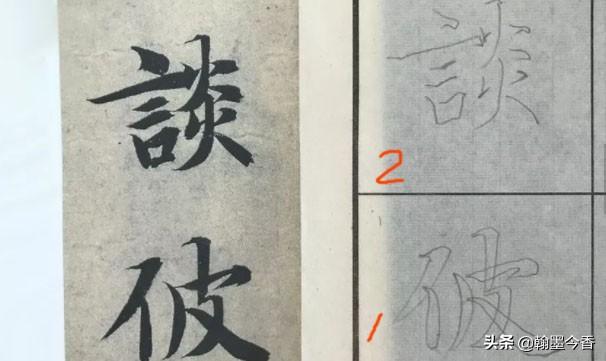 談
彼
談
2
彼
1
头条 @翰墨今香